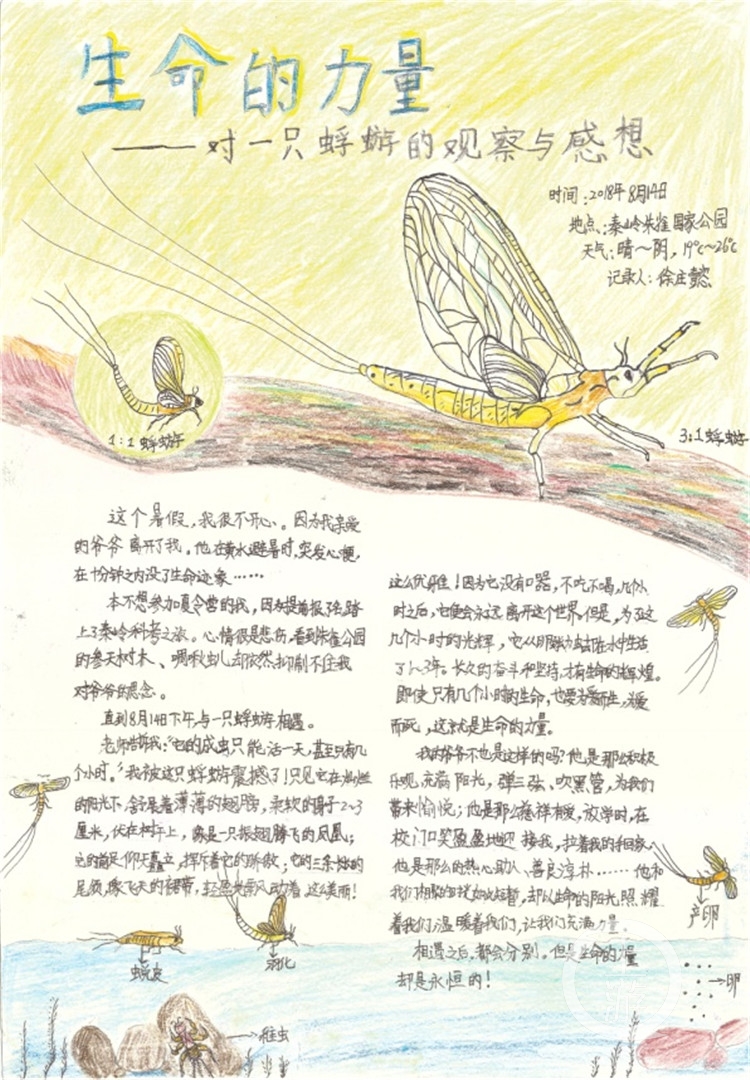 生命的力量
——对一只蜉蝣的观察与感想
时间:2018年8月14日
地点:秦岭朱雀国家公园
天气:晴~阴,19℃~26℃
记录人:徐庄懿
1:1蜉蝣
3:1蜉蝣
这个暑假,我很不开心。因为我亲爱
的爷爷离开了我。他在黄水避暑时,突发心梗,
在十分钟之内没了生命迹象……
本不想参加夏令营的我,因为提前报了名,踏
上了秦岭科考之旅。心情很是悲伤,看到朱雀公园
的参天树木、啁啾虫儿却依然抑制不住我
对爷爷的思念。
直到8月14日下午,与一只蜉蝣相遇。
老师告诉我:“它的成虫只能活一天,甚至只有几
个小时。”我被这只蜉蝣震撼了!只见它在灿烂
的阳光下,舒展着薄薄的翅膀,柔软的身子2~3
厘米,伏在树干上,像是一只振翅腾飞的凤凰;
它的前足仰天矗立,挥斥着它的骄傲;它的三条细细的
尾须,像飞天的裙带,轻盈地随风飘动着,这么美丽!
这么优雅!因为它没有口器,不吃不喝,几个小
时之后,它便会永远离开这个世界。但是,为了这
几个小时的光辉,它从卵孵化出来在水中生活
了1~3年。长久的奋斗和坚持,才有生命的辉煌。
即使只有几个小时的生命,也要为爱而生,为爱
而死,这就是生命的力量。
我的爷爷不也是这样的吗?他是那么积极
乐观,充满阳光,弹三弦、吹黑管,为我们
带来愉悦;他是那么慈祥有爱,放学时,在
校门口笑盈盈地迎接我,拉着我的手回家。
他是那么的热心助人、善良淳朴……他和
我们相聚的时光如此短暂,却以生命的阳光照耀
着我们,温暖着我们,让我们充满力量。
相遇之后,都会分别。但是生命的力量
却是永恒的!
产卵
卵
蜕皮
羽化
稚虫